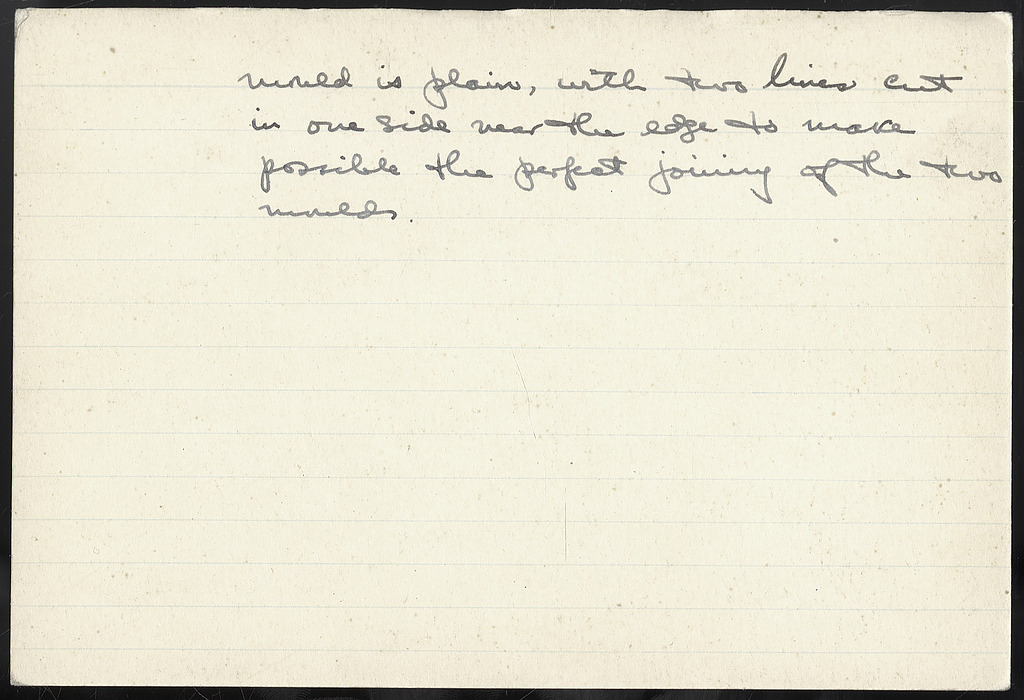 mould is plain, with two lines cut
in one side near the edge to make
possible the perfect joining of the two
moulds.